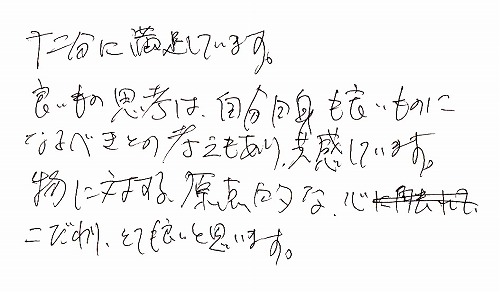 十二分に満足しています。
良いもの思考は、自分自身も良いものに
なるべきとの考えもあり、共感しています。
物に対する、原点的な、心
こだわり、とても良いと思います。